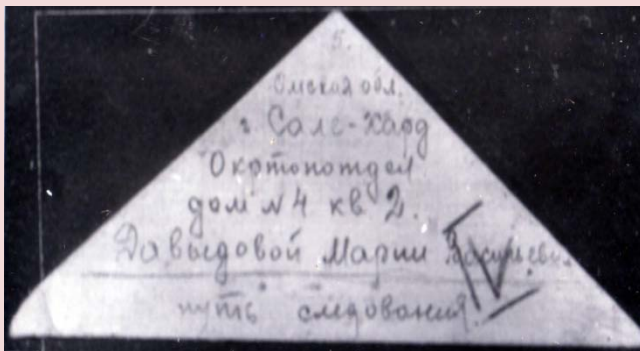 5.
Омская обл.
г Сале-Хард
дом N4 кв 2.
Давыдовой Марии Васильевн.
путь следования.
IV